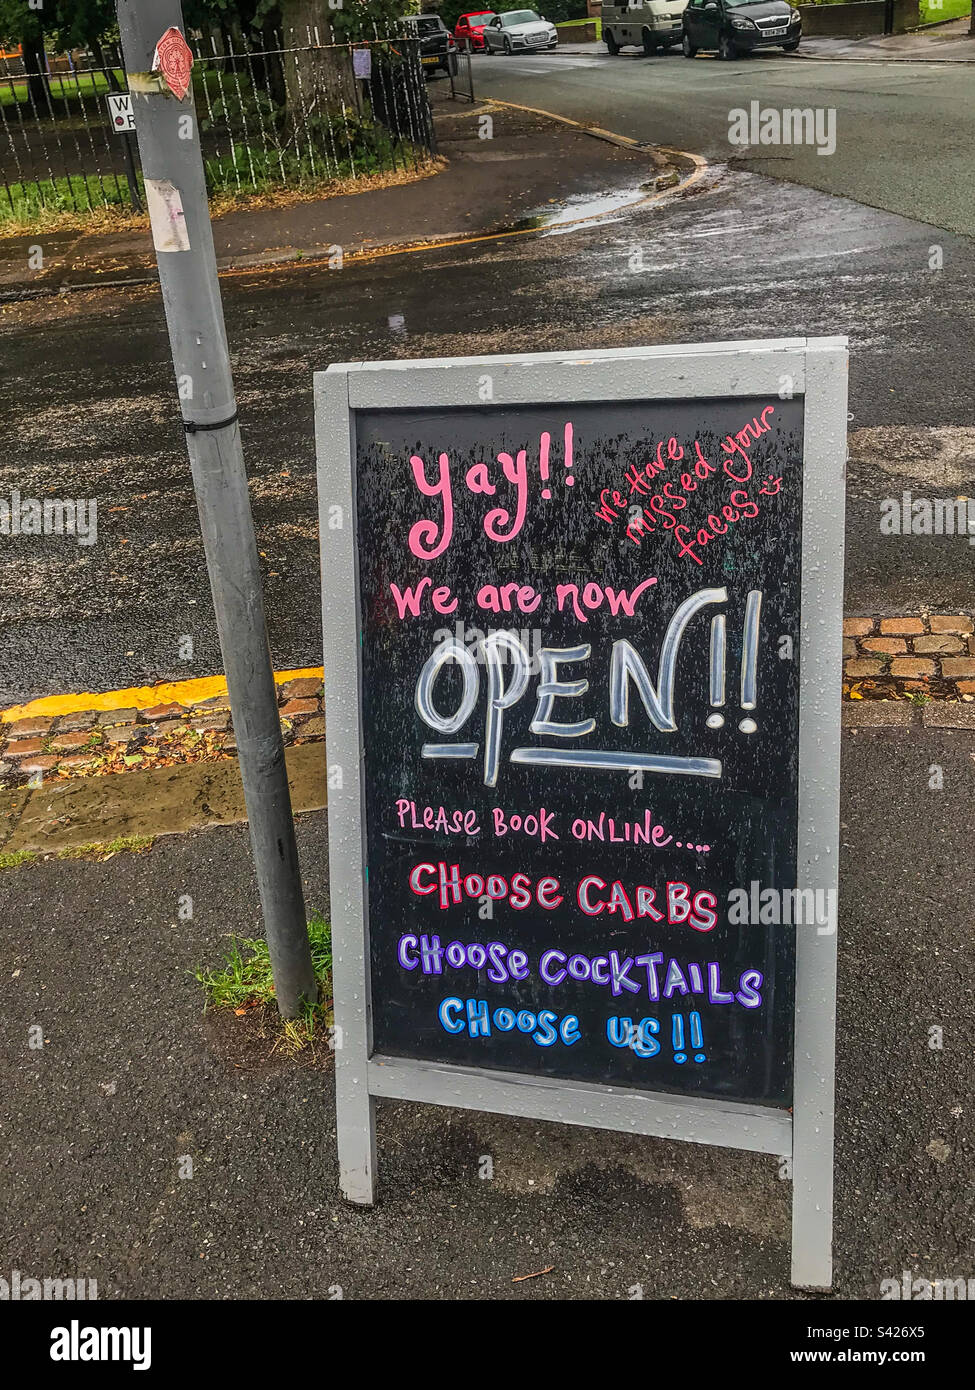 yay!!
We Have
missed your
faces
We are now
OPEN!!
PLEASE BOOK ONLINE.....
CHOOSE CARBS
CHOOSE COCKTAILS
CHOOSE US!!
W
alamy
Image ID: S426X5
www.alamy.com